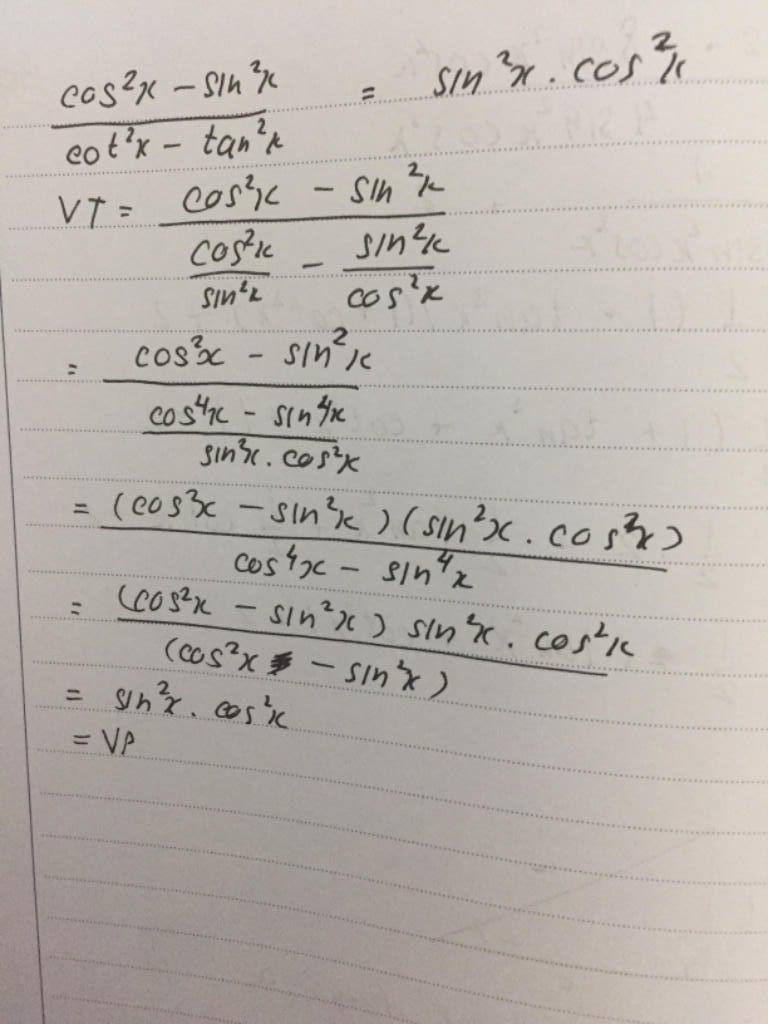 (cos²x - sin²x)/(cot²x - tan²x) = sin²x . cos²x
VT = (cos²x - sin²x)/(cos²x/sin²x - sin²x/cos²x)
= (cos²x - sin²x)/((cos⁴x - sin⁴x)/(sin²x . cos²x))
= (cos²x - sin²x)(sin²x . cos²x)/(cos⁴x - sin⁴x)
= (cos²x - sin²x) sin²x . cos²x/(cos²x - sin²x)
= sin²x . cos²x
= VP